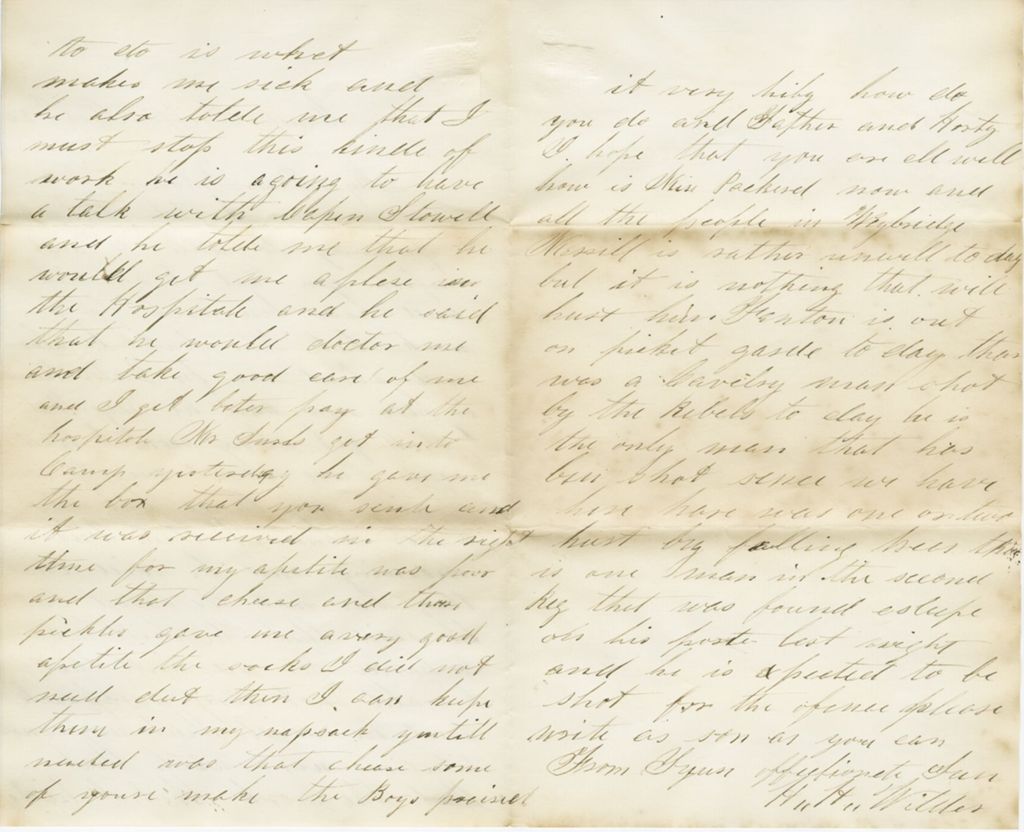 to do is what
makes me sick and
he also tolde me that I
must stop this kinde of
work he is agoing to have
a talk with Capen Stowell
and he tolde me that he
would get me aplese in
the Hospitale and he said
that he would doctor me
and take good care of me
and I get beter pay at the
hospitale Mr got into
Camp yesterday he gave me
the box that you sente and
it was received in the right
time for my apitite was poor
and that cheese and those
pickles gave me avery good
apetite the socks I did not
need but then I can kepe
them in my napsack yuntill
needed was that cheese some
of youre make the Boys praised
it very hily how do
you do and Father and Horty
I hope that you are all well
how is Miss Packerd now and
all the people in Weybridge
Merrill is rather unwell to day
but it is nothing that will
hurt him. Fenton is out
on picket garde to day thare
was a Cavilry man shot
by the Rebels to day he is
the only man that has
bin shot sence we have
bin hare was one ortwo
hurt by falling trees thare
is one man in the second
Reg that was found asleepe
on his poste last night
and he is expected to be
shot for the ofence please
write as son as you can
From Youre affectionate Sun
Wilder